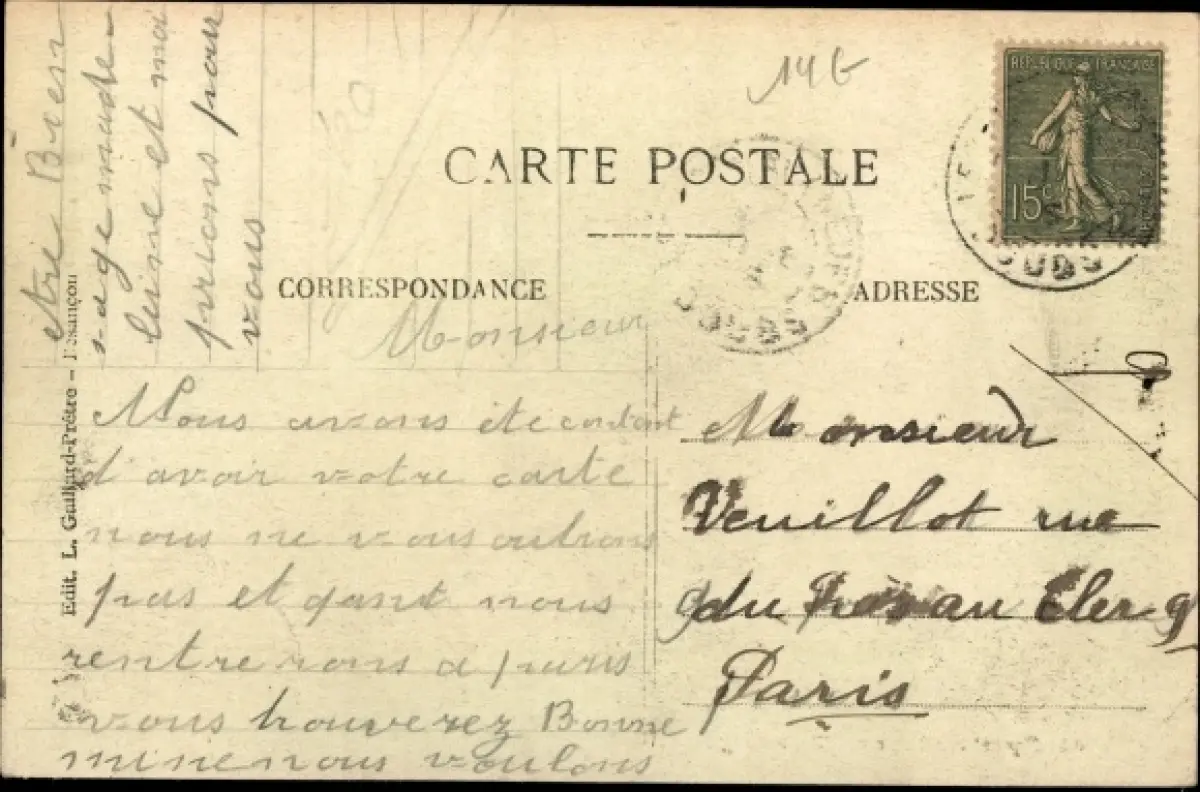 14 G
REPUBLIQUE FRANÇAISE
15c
CARTE POSTALE
CORRESPONDANCE
ADRESSE
DOUBS
DOUBS
Edit. L. Gaillard-Prêtre – Besançon
Monsieur
Nous avons éte content
d'avoir votre carte
nous ne vous oublions
pas et qant nous
rentrerons a paris
vous trouverez Bonne
mine nous voulons
etre Bien
sage made
leine et moi
prions pour
vous
Monsieur
Veuillot rue
du au Clerq
Paris